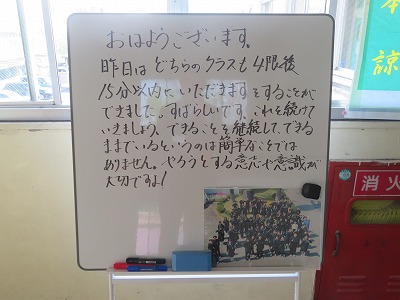 おはようございます。
昨日はどちらのクラスも4限後
15分以内にいただきますをすることが
できました。すばらしいです。これを続けて
いきましょう。できることを継続して、できる
ままでいるというのは簡単なことでは
ありません。やろうとする意志や意識が
大切ですよ!
消火
諒